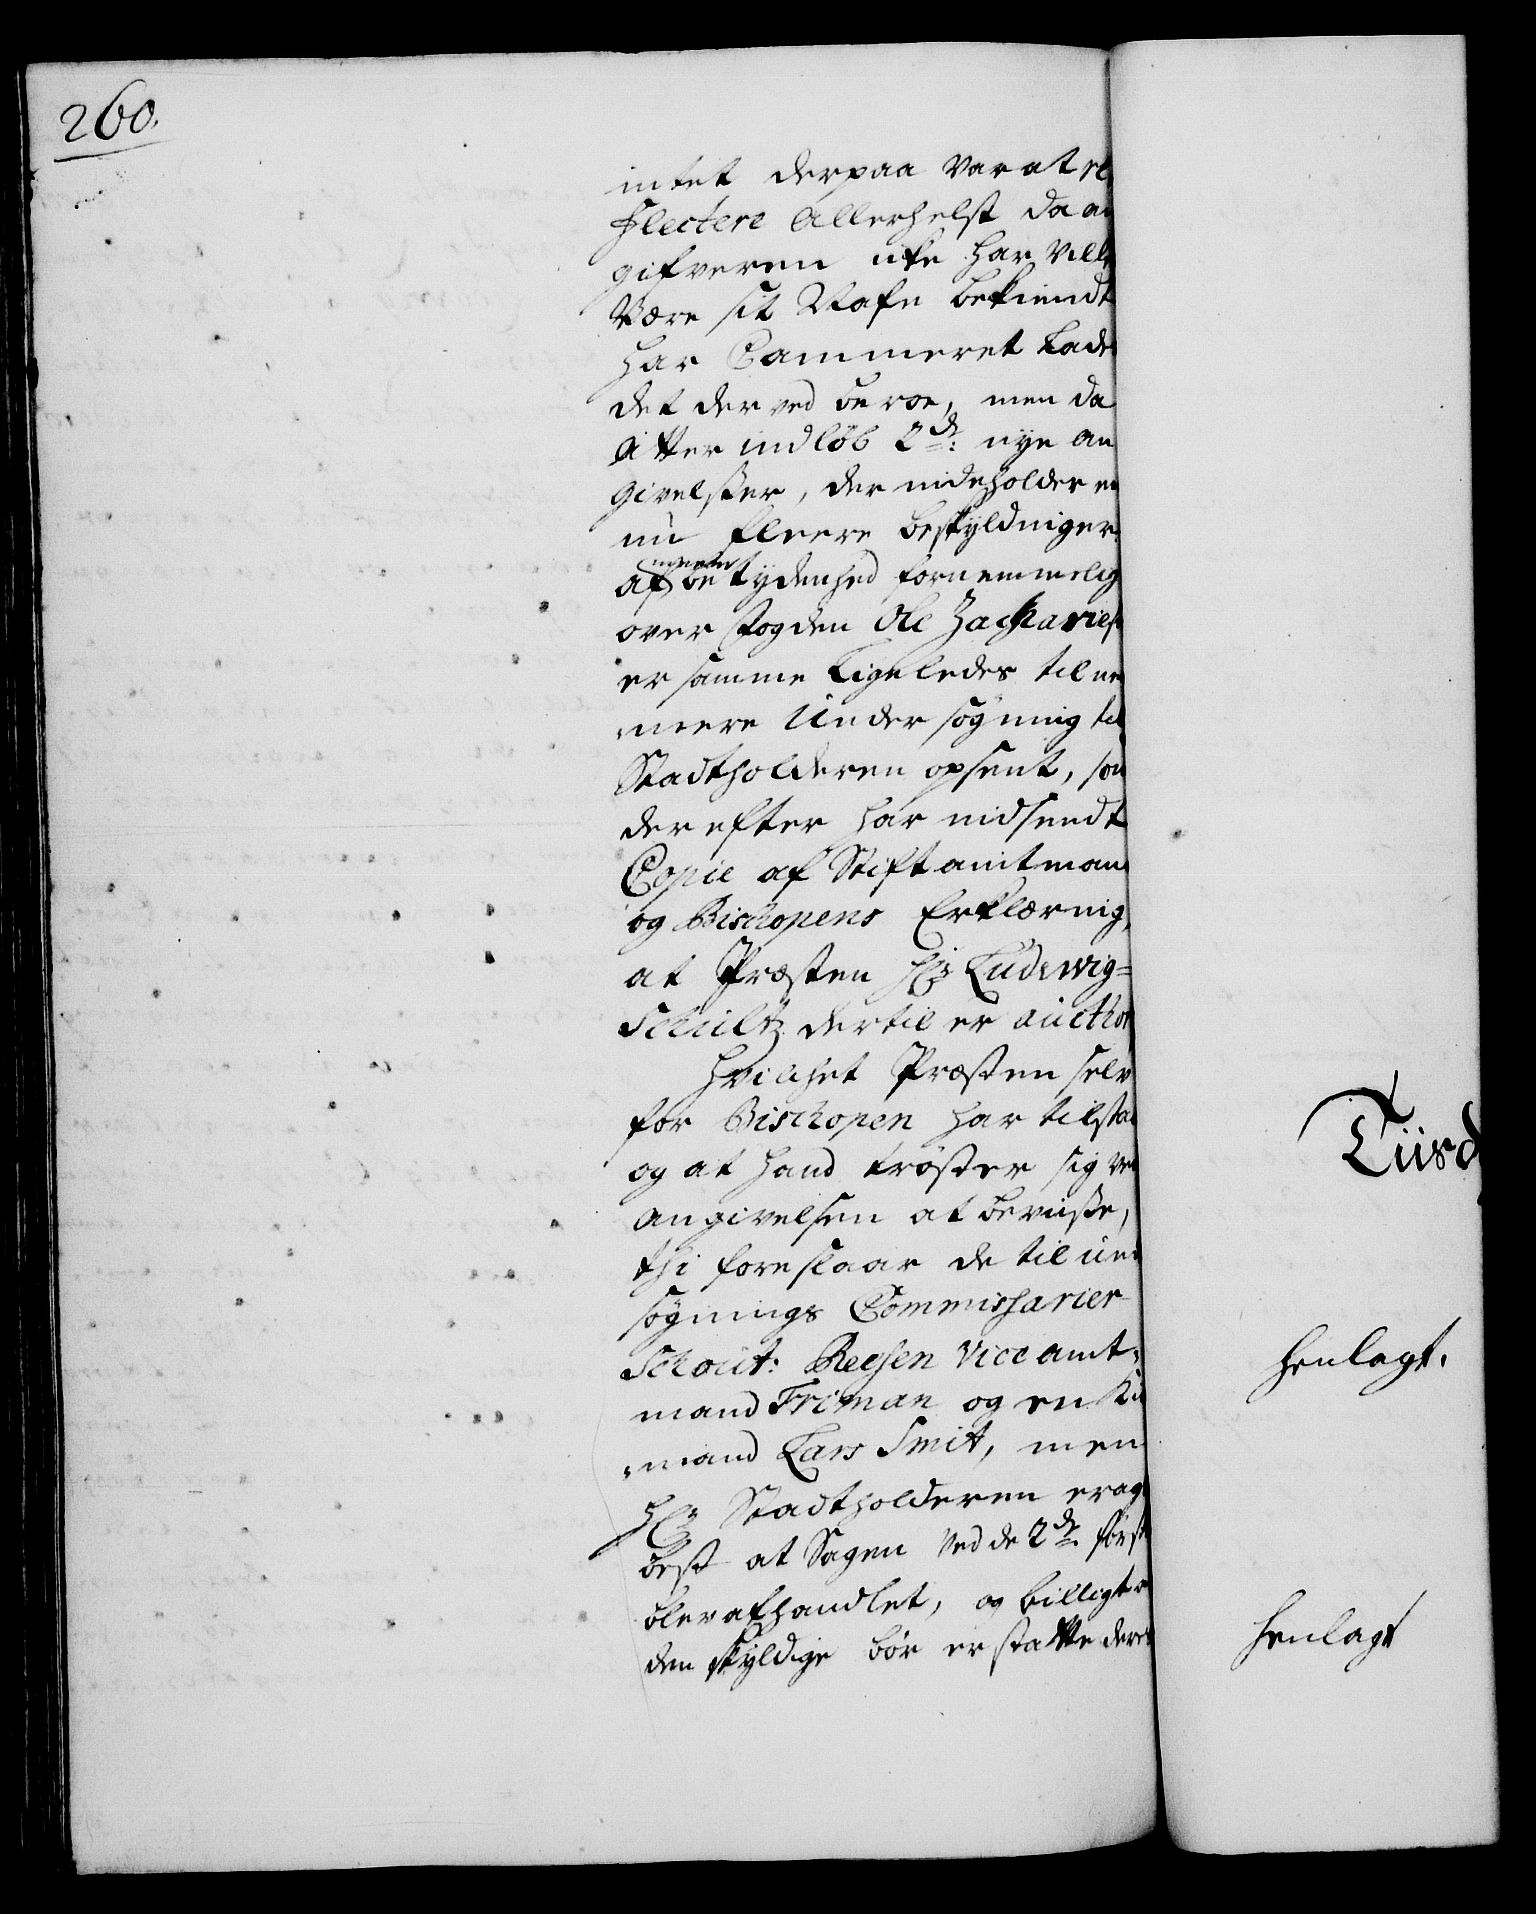 260.
intet derpaa var at re
flectere allerhelst da an
gifveren icke har vill
være sit Nafn bekiendt
har Cammeret lade
det derved beroe, men da
atter indløb 2de: nye an
givelsser, der indeholder en
nu fleere beskyldninger
af meere betydenhed fornemmelig
over Fogden Ole Zacharies
er samme ligeledes til ner
mere Undersøgning til
Stadtholderen opsent, som
derefter har indsendt
Copie af Stiftamtmand
og Bischopens Erklæring,
at Præsten Hr Ludewig=
Schultz dertil er aucthor
Hvilchet Præsten selv
for Bischopen har tilstaa
og at hand trøster sig ved
angivelsen at beviisse,
thi foreslaar de til un
søgnings Commissarier
Schout: Reesen Vice amt=
mand Friman og en Kiø
mand Lars Smit, men
Hr Stadtholderen erag
best at Sagen ved de 2de første
blev afhandlet, og billigt at
den skyldige bør erstatte deres
Tiisd
henlagt.
henlagt